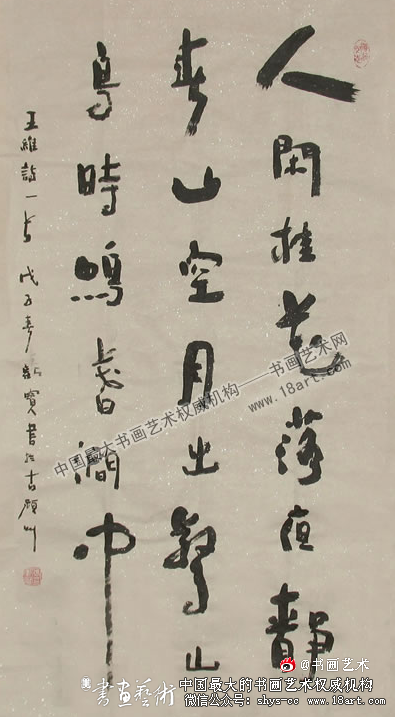 人閑桂花落夜靜
春山空月出驚山
鳥時鳴春澗中
王維詩一首 戊子春 寶書於古
中国最大书画艺术权威机构——书画艺术网
www.18art.com
@书画艺术
書畫藝術
中国最大的书画艺术权威机构
微信公众号: shys-cc www.18art.com